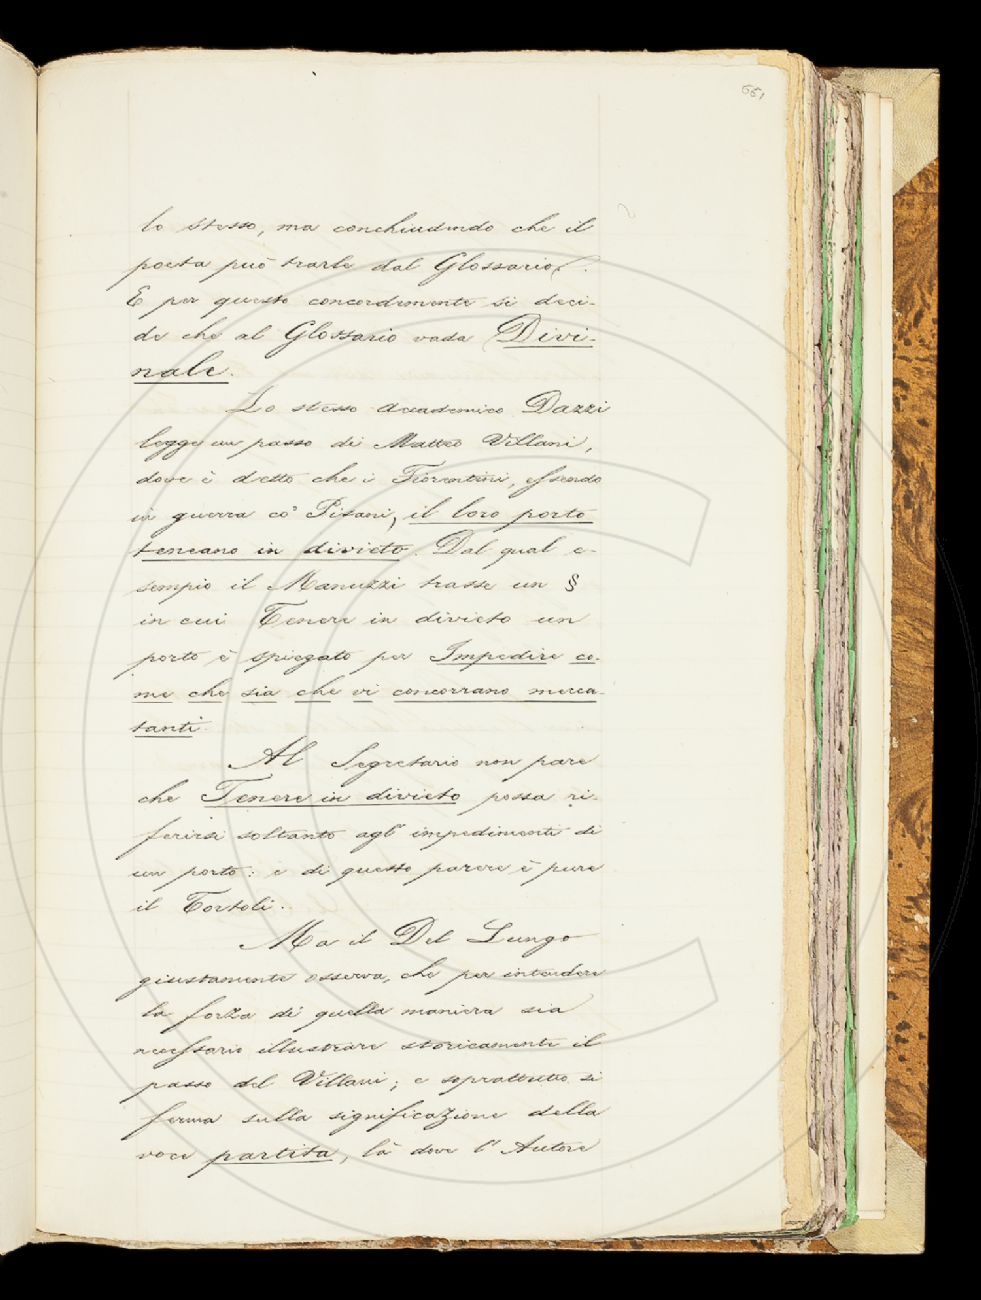 661
lo stesso, ma conchiudendo che il
poeta può trarle dal Glossario.
E per questo concordemente si deci-
de che al Glossario vada Divi-
nale.
Lo stesso Accademico Dazzi
legge un passo di Matteo Villani,
dove è detto che i Fiorentini, essendo
in guerra co' Pisani, il loro porto
teneano in divieto. Dal qual e-
sempio il Manuzzi trasse un §
in cui Tenere in divieto un
porto è spiegato per Impedire co-
me che sia che vi concorrano merca-
tanti.
Al Segretario non pare
che Tenere in divieto possa ri-
ferirsi soltanto agl' impedimenti di
un porto: e di questo parere è pure
il Tortoli.
Ma il Del Lungo
giustamente osserva, che per intendere
la forza di quella maniera sia
necessario illustrare storicamente il
passo del Villani; e soprattutto si
ferma sulla significazione della
voce partita, là dove l'Autore